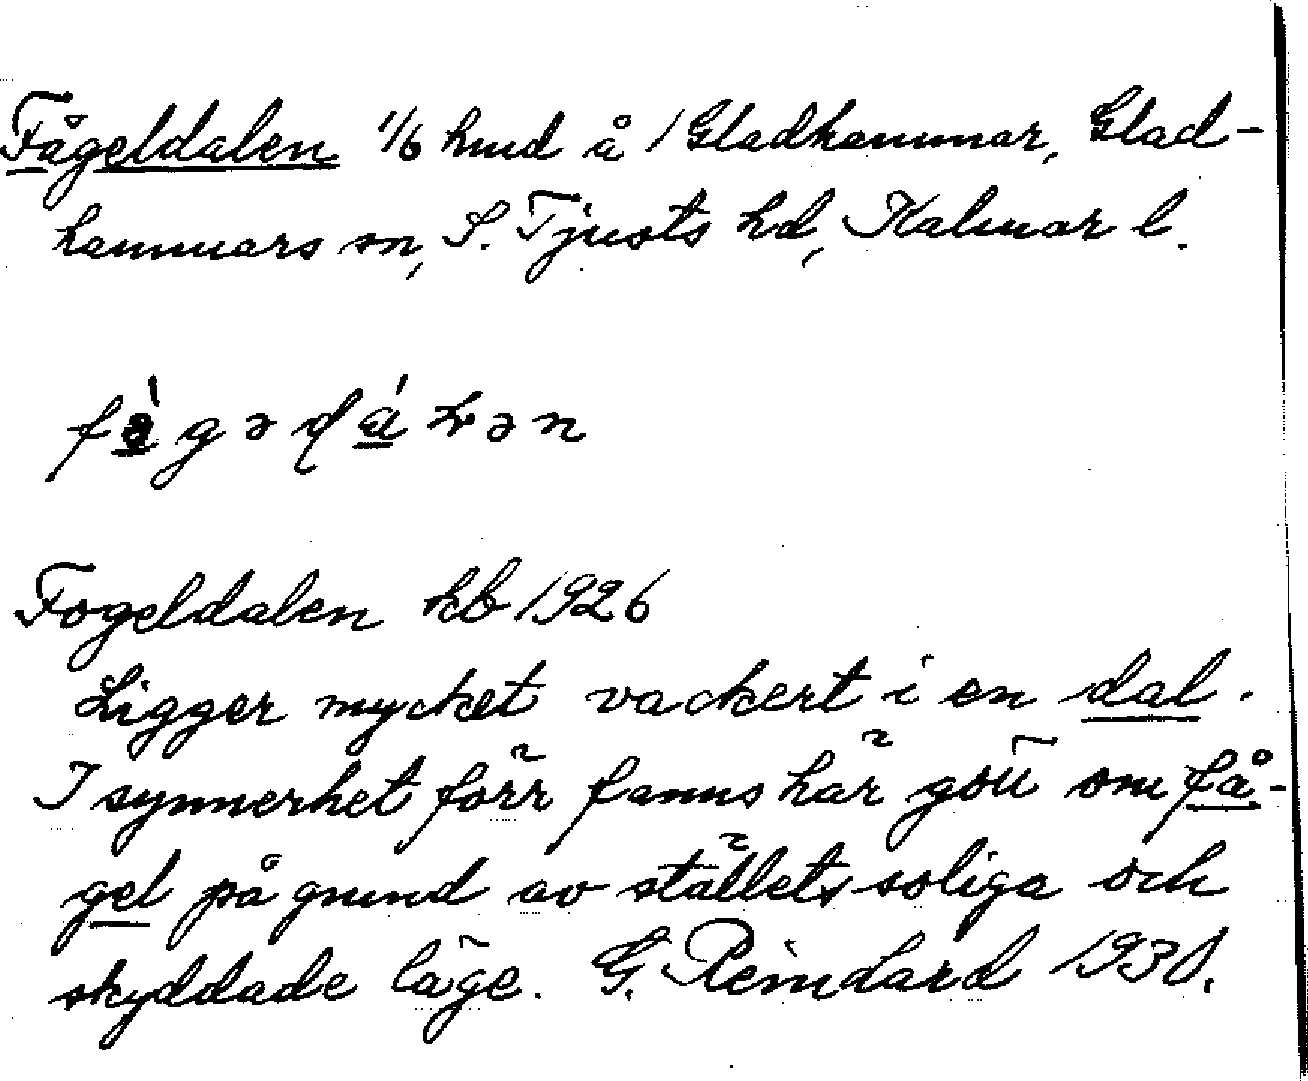 Fågeldalen 1/6 hmd å 1 Gladhammar, Glad-
hammars sn, S. Tjusts hd, Kalmar l.
Fogeldalen kb 1926
Ligger mycket vackert i en dal.
I synnerhet förr fanns här gott om få-
gel på grund av ställets soliga och
skyddade läge. G. Reinhard 1931.